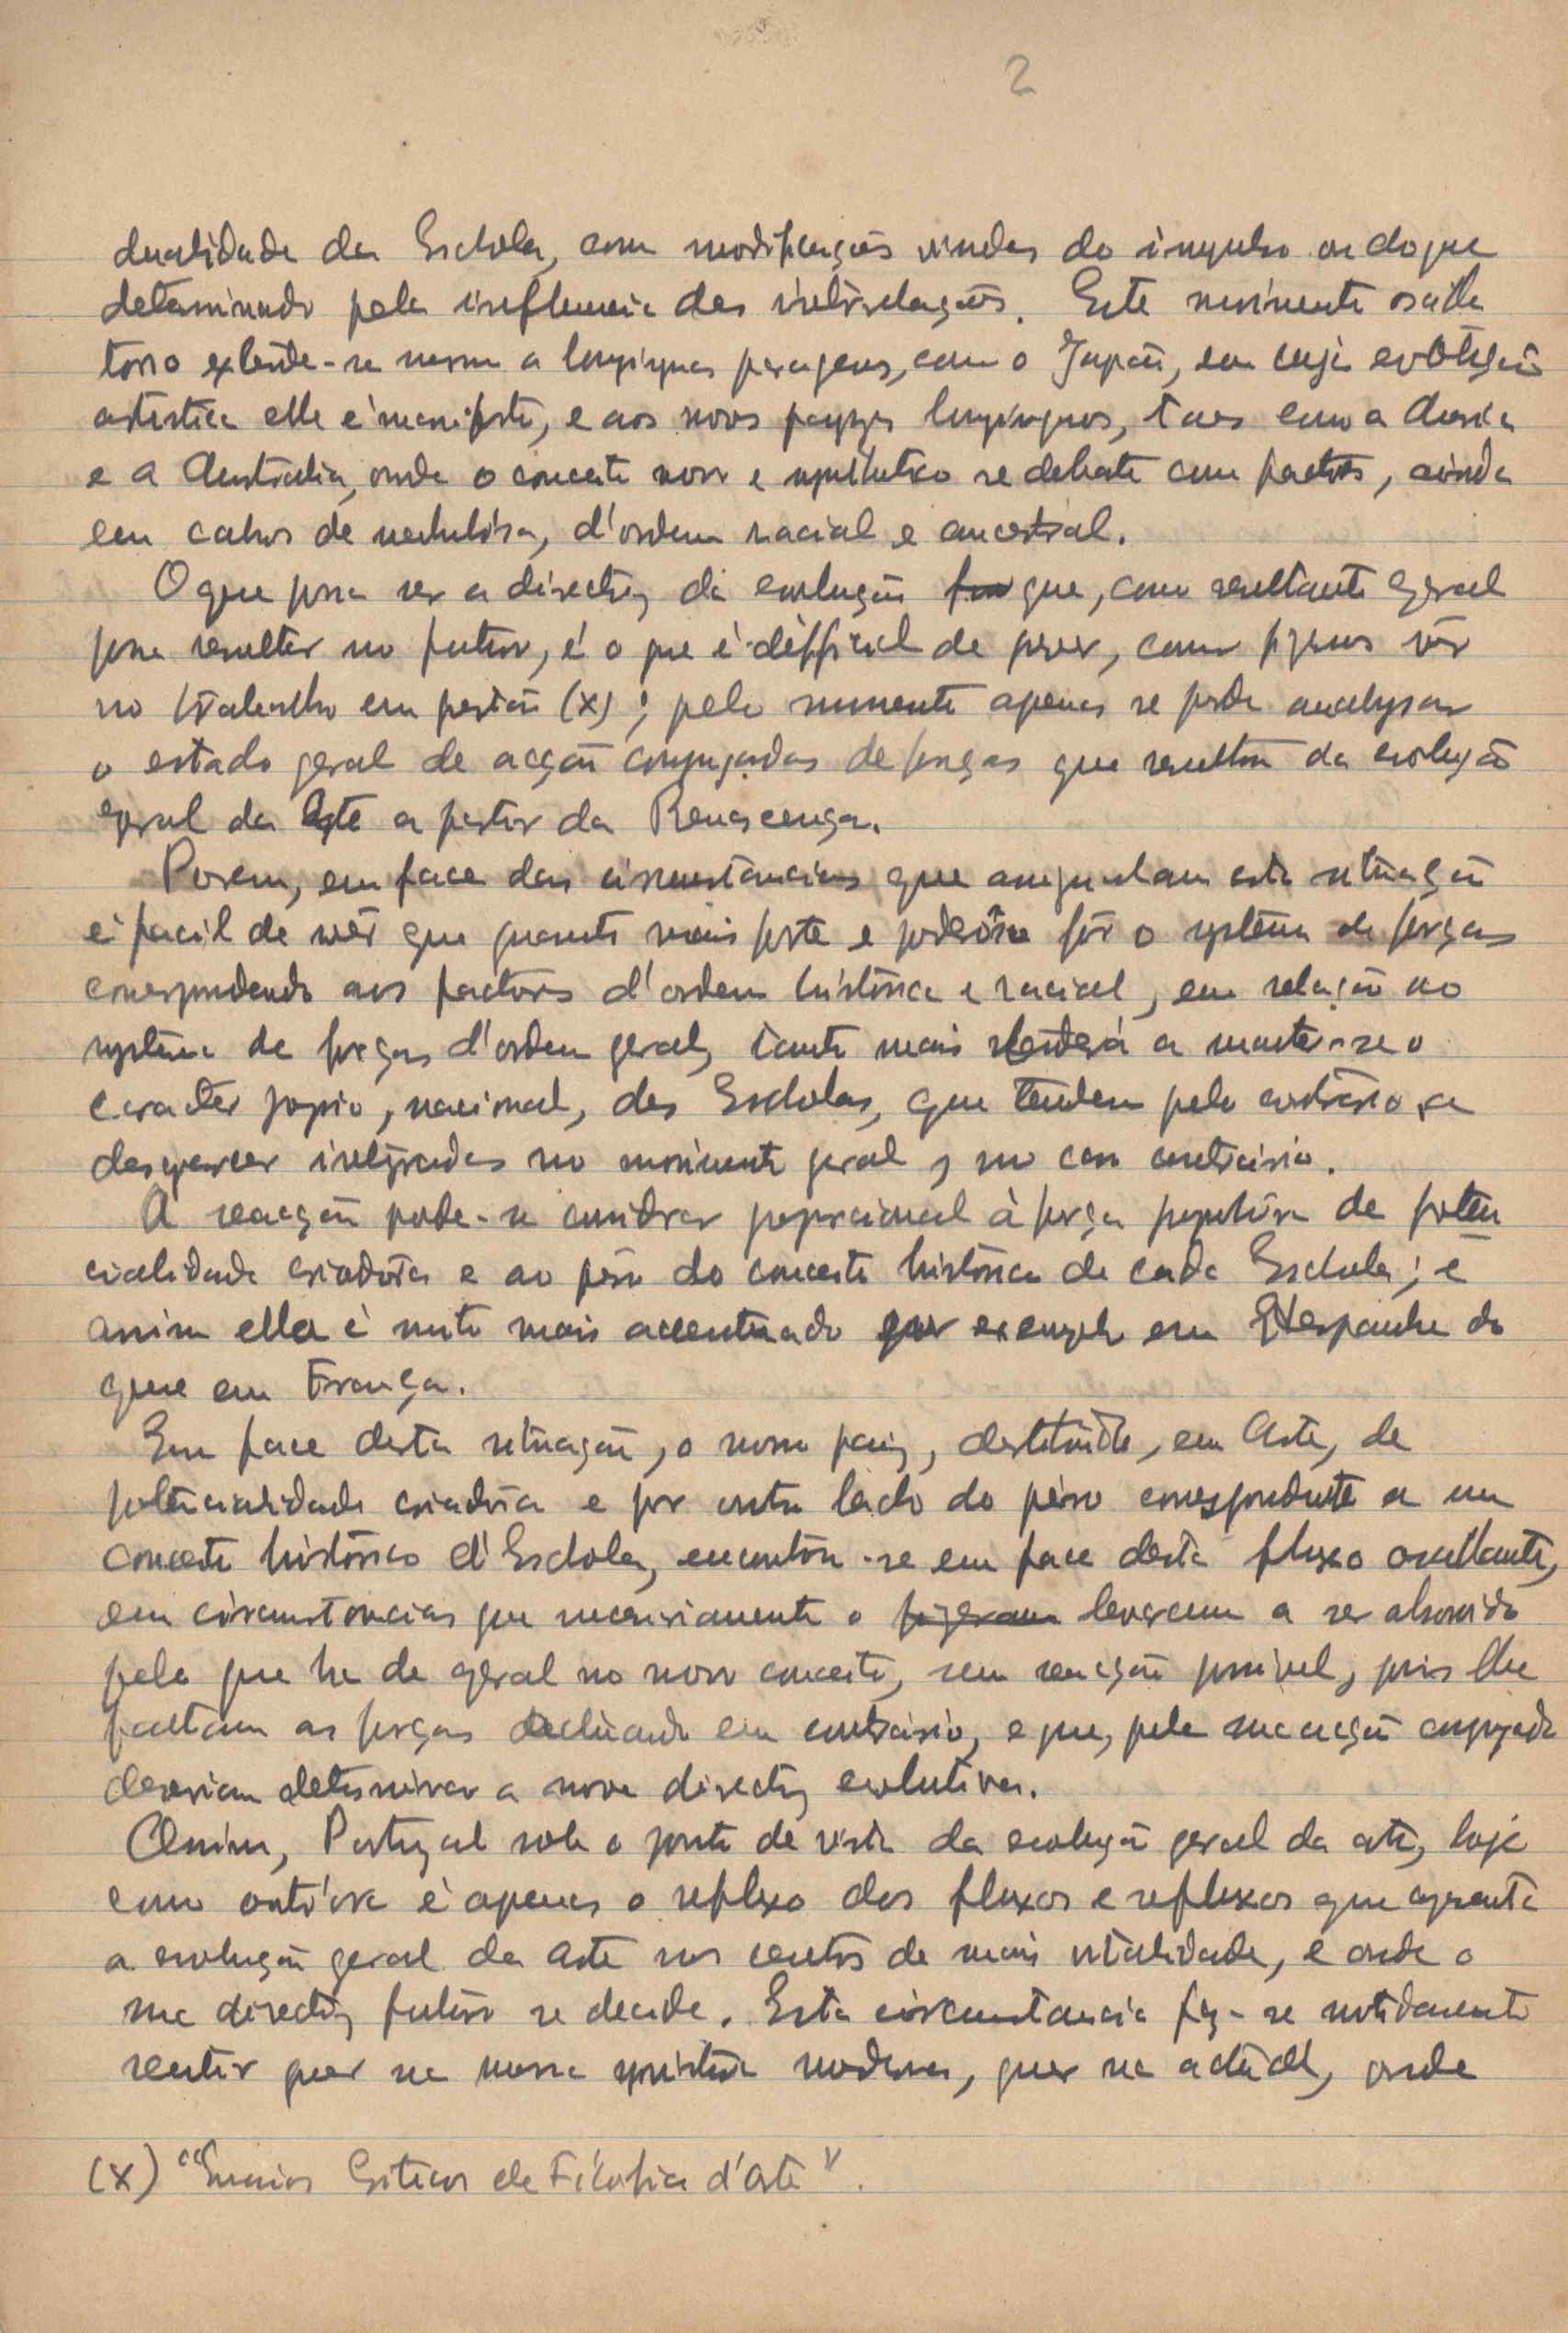 2
dualidade da Eschola, com modificações vindas do impulso ou do que
determinado pela influencia das inter-relações. Este movimento oscilla
torio extende-se mesmo a longiquas paragens, como o Japão, em cuja evolução
artistica elle é manifesto, e aos novos payzes longiquos, taes como a America
e a Australia, onde o conceito novo e synthetico se debate com factores, ainda
em cahos de nebulosa, d'ordem racial e ancestral.
O que possa ser a directriz da evolução que, como resultante geral
possa resultar no futuro, é o que é difficil de prever, como fizemos vêr
no trabalho em questão (x); pelo momento apenas se pode analysar
o estado geral de acção conjugadas de forças que resultou da evolução
geral da Arte a partir da Renascença.
Porem, em face das circunstancias que acompanham esta situação
é facil de vêr que quanto mais forte e poderoso fôr o systema de forças
correspondendo aos factores d'ordem historica e racial, em relação ao
systema de forças d'ordem geral, tanto mais tenderá a manter-se o
caracter proprio, nacional, das Escholas, que tendem pelo contrario, a
desaparecer integradas no movimento geral, no caso contrario.
A reacção pode-se considerar proporcional à força propulsora de poten
cialidade criadora e ao peso do conceito historico de cada Eschola; e
assim ella é muito mais accentuado por exemplo em Hespanha do
que em França.
Em face desta situação, o nosso paiz, destituido, em Arte, de
potencialidade criadora e por outro lado do peso correspondente a um
conceito historico d'Eschola, encontra-se em face deste fluxo oscillante,
em circunstancias que necessariamente o fizeram levaram a ser absorvido
pelo que ha de geral no novo conceito, sem reacção possivel, pois lhe
faltam as forças actuando em contrario, e que, pela sua acção conjugada
deveriam determinar a nova directriz evolutiva.
Assim, Portugal sob o ponto de vista da evolução geral da arte, hoje
como outr'ora é apenas o reflexo dos fluxos e refluxos que apresenta
a evolução geral da arte nos centros de mais vitalidade, e onde a
sua directriz futura se decide. Esta circumstancia fez-se nitidamente
sentir quer na nossa pintura moderna, quer na actual, onde
(x) "Ensaios Criticos de Filosofia d'Arte".